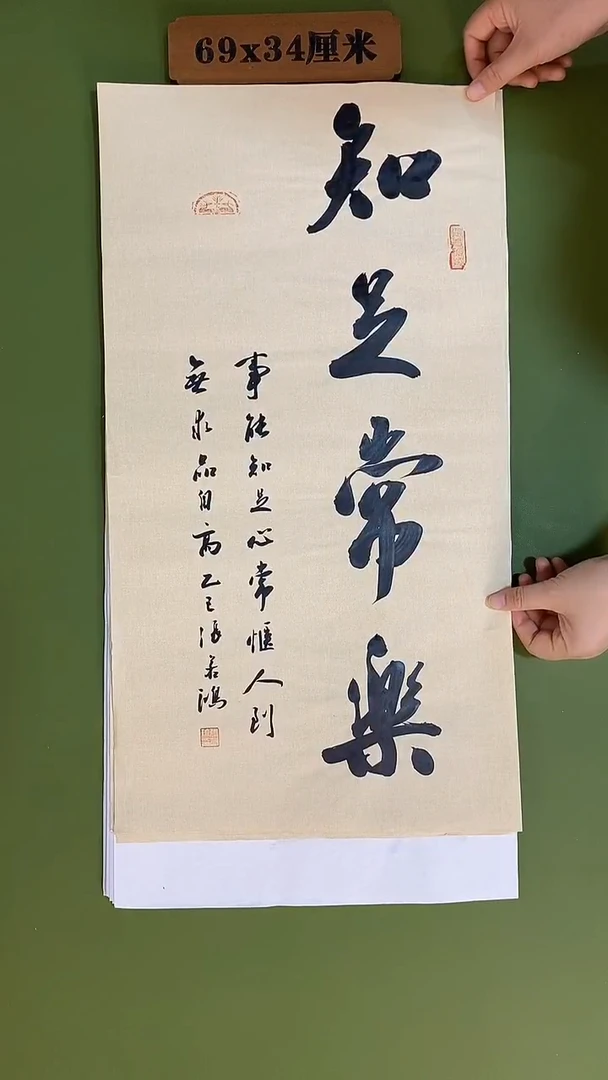 69x34厘米
知足常樂
事能知足心常惬人到
無求品自高乙巳張若鴻